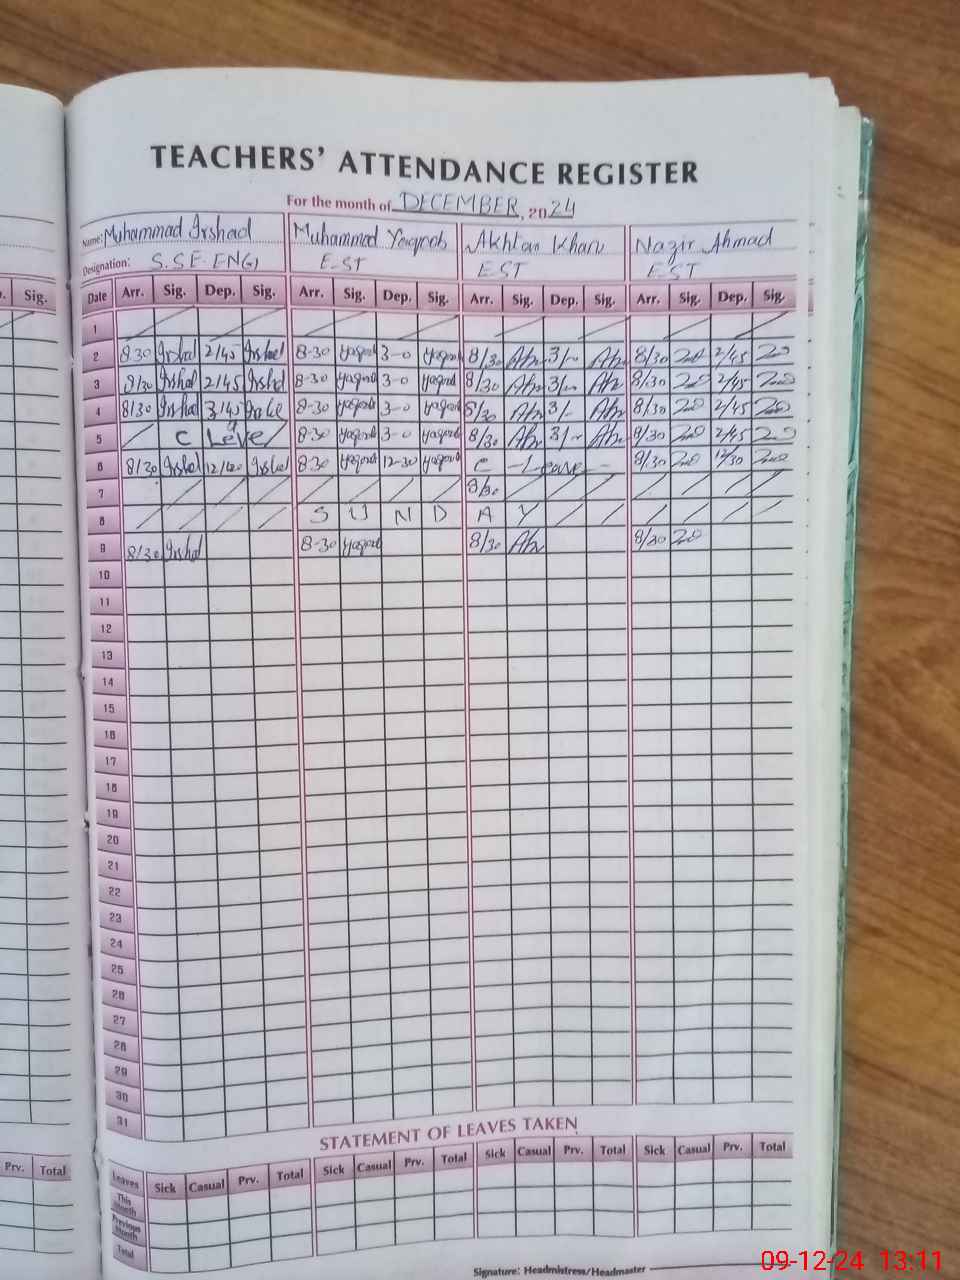 TEACHERS' ATTENDANCE REGISTER
For the month of DECEMBER, 2024
Name: Muhammad Irshad Muhammad Yaqoob Akhtar Khan Nazir Ahmad
Designation: S.SE-ENG E-ST E-ST E-ST
Sig. Date Arr. Sig. Dep. Sig. Arr. Sig. Dep. Sig. Arr. Sig. Dep. Sig. Arr. Sig. Dep. Sig.
1
2 8/30 Irshad 2/45 Irshad 8-30 Yaqoob 3-0 Yaqoob 8/30 3/- 8/30 2/45
3 8/30 Irshad 2/45 Irshad 8-30 Yaqoob 3-0 Yaqoob 8/30 3/- 8/30 2/45
4 8/30 Irshad 8-30 Yaqoob 3-0 Yaqoob 8/30 3/- 8/30 2/45
5 C Leave 8-30 Yaqoob 3-0 Yaqoob 8/30 3/- 8/30 2/45
6 8/30 Irshad Irshad 8-30 Yaqoob 12-30 Yaqoob C - Leave - 8/30 12/30
7 8/30
8 S U N D A Y
9 8/30 Irshad 8-30 Yaqoob 8/30 8/30
10
11
12
13
14
15
16
17
18
19
20
21
22
23
24
25
26
27
28
29
30
31
STATEMENT OF LEAVES TAKEN
Prv. Total Leaves Sick Casual Prv. Total Sick Casual Prv. Total Sick Casual Prv. Total Sick Casual Prv. Total
This Month
Previous Month
Total
Signature: Headmistress/Headmaster
09-12-24 13:11